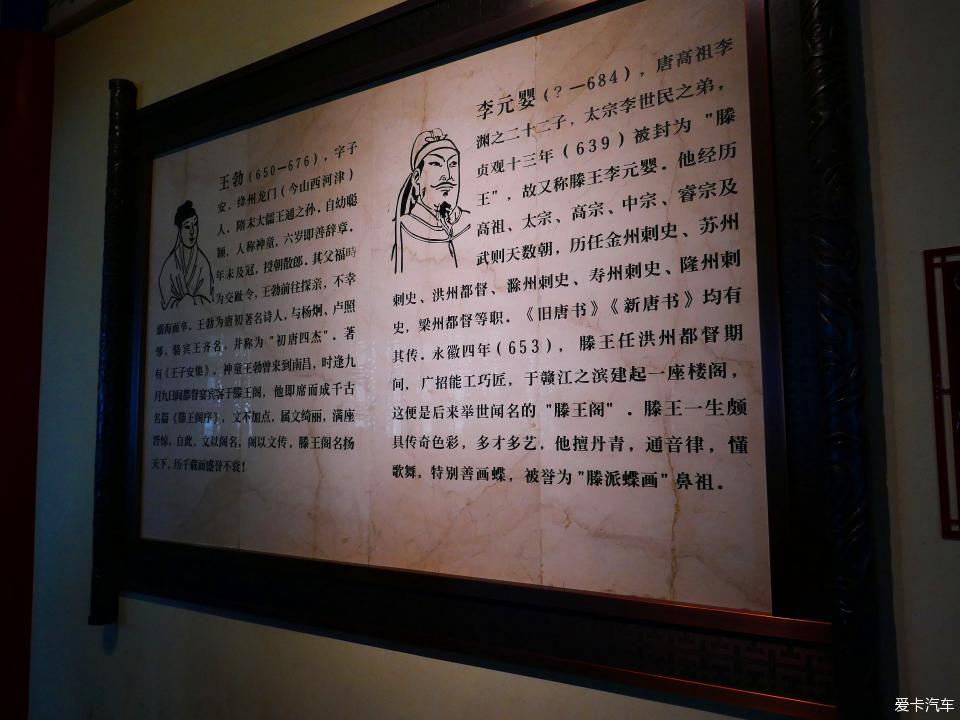 王勃(650—676),字子
安,绛州龙门(今山西河津)
人,隋末大儒王通之孙。自幼聪
颖,人称神童,六岁即善辞章。
年未及冠,授朝散郎。其父福畤
为交趾令,王勃前往探亲,不幸
溺海而卒。王勃为唐初著名诗人,与杨炯、卢照
邻、骆宾王齐名,并称为"初唐四杰"。著
有《王子安集》。神童王勃曾来到南昌,时逢九
月九日阎都督宴宾客于滕王阁,他即席而成千古
名篇《滕王阁序》,文不加点,属文绮丽,满座
皆惊。自此,文以阁名,阁以文传,滕王阁名扬
天下,历千载而盛誉不衰!
李元婴(?—684),唐高祖李
渊之二十二子,太宗李世民之弟,
贞观十三年(639)被封为"滕
王",故又称滕王李元婴。他经历
高祖、太宗、高宗、中宗、睿宗及
武则天数朝,历任金州刺史、苏州
刺史、洪州都督、滁州刺史、寿州刺史、隆州刺
史,梁州都督等职。《旧唐书》《新唐书》均有
其传。永徽四年(653),滕王任洪州都督期
间,广招能工巧匠,于赣江之滨建起一座楼阁,
这便是后来举世闻名的"滕王阁"。滕王一生颇
具传奇色彩,多才多艺。他擅丹青,通音律,懂
歌舞,特别善画蝶,被誉为"滕派蝶画"鼻祖。
爱卡汽车